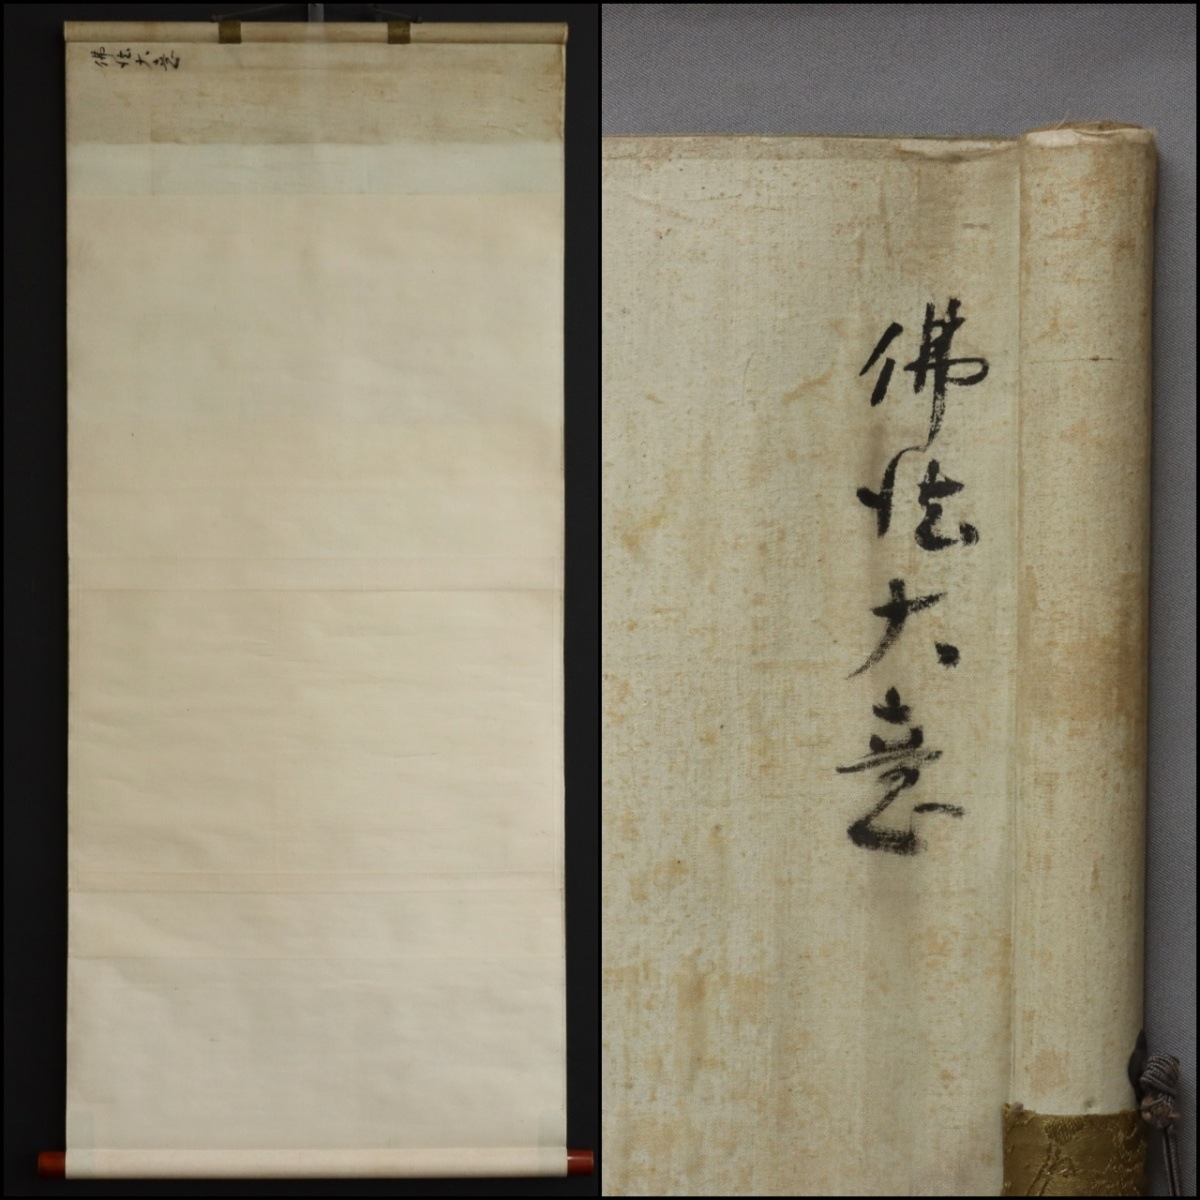 佛法大意
佛法大意